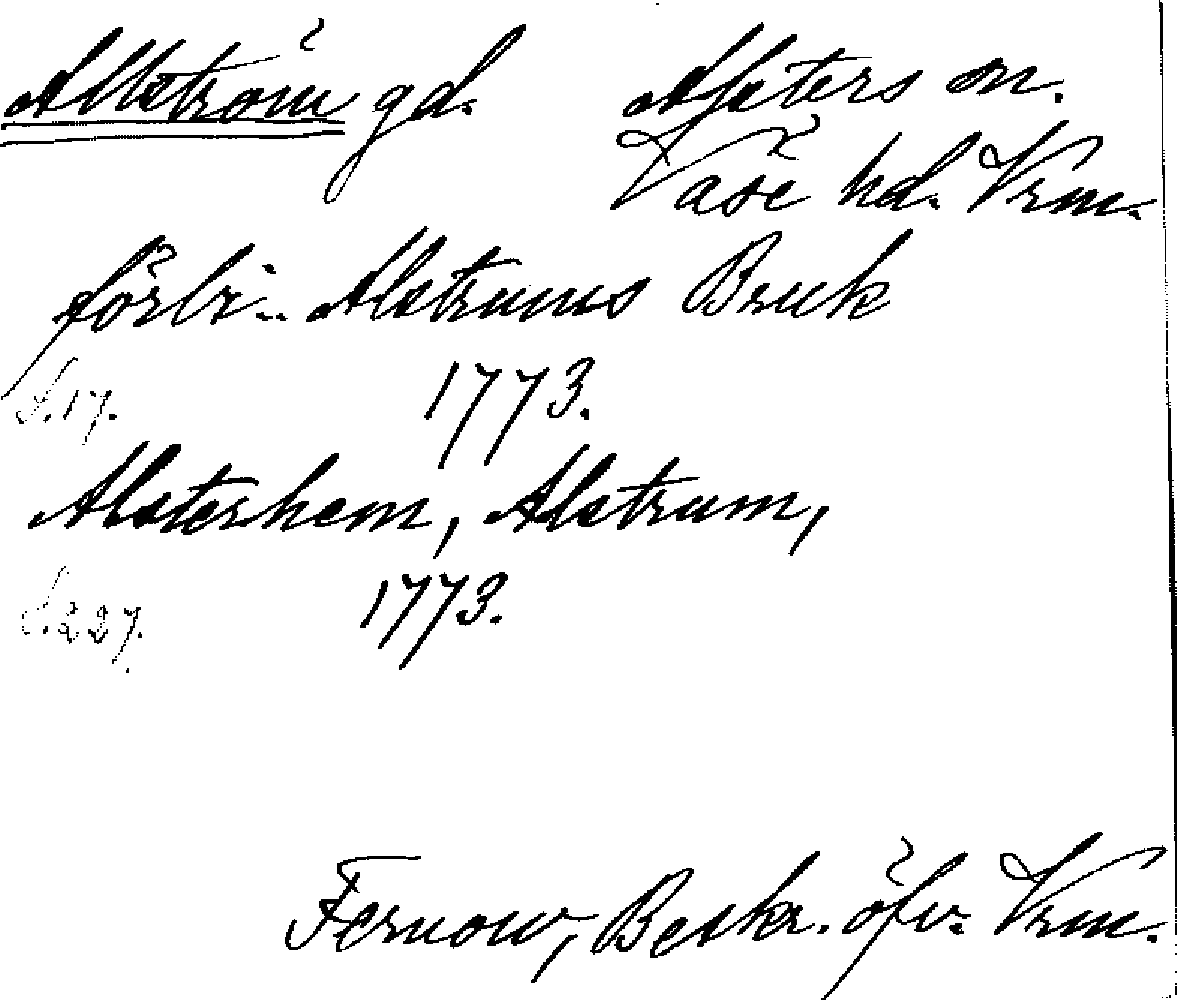 Allström gd. Alsters sn.
Väse hd. Vrm.
förbi.. Alstrums Bruk
S.17. 1773.
Alsterhem, Alstrum,
S.227. 1773.
Fernow, Beskr. öfv. Vrm.